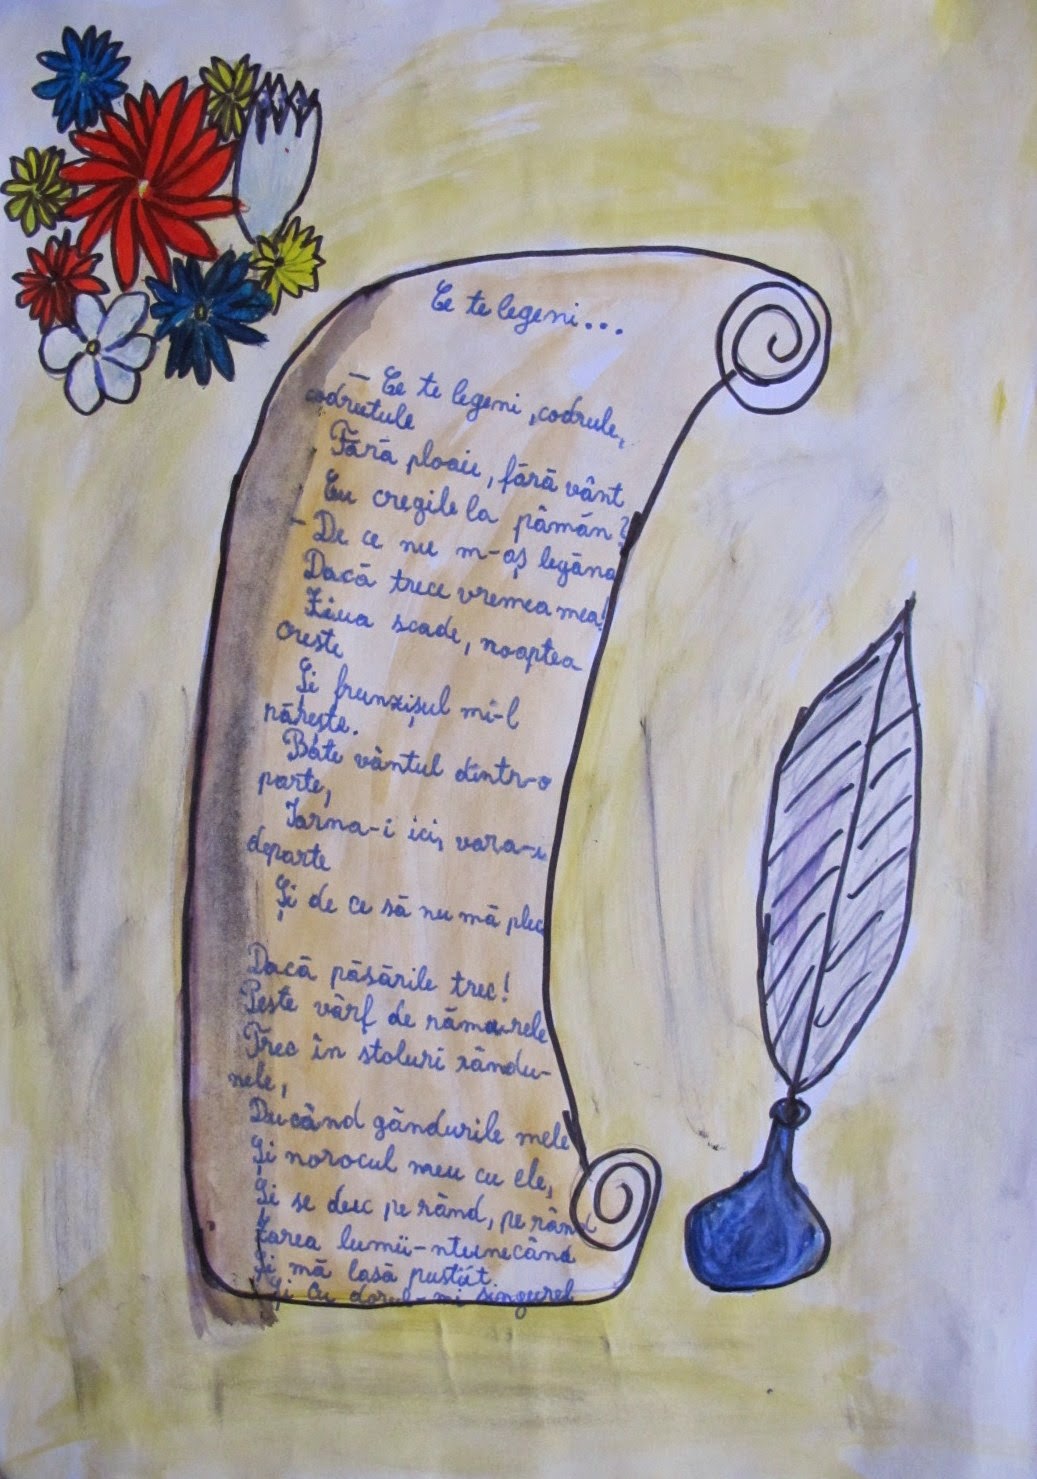 Ce te legeni...
— Ce te legeni, codrule,
codrutule
Fără ploaie, fără vânt
Cu cregile la pâmân?
- De ce nu m-aș legăna
Dacă trece vremea mea!
Ziua scade, noaptea
creste
Și frunzișul mi-l
părește.
Bate vântul dintr-o
parte,
Iarna-i ici, vara-i
departe
Și de ce să nu mă plec
Dacă păsările trec!
Peste vârf de rămurele
Trec în stoluri rându-
nele,
Ducând gândurile mele
Și norocul meu cu ele,
Și se duc pe rând, pe rând
Zarea lumii-ntunecând
Și mă lasă pustiit
Și cu dorul-mi singurel